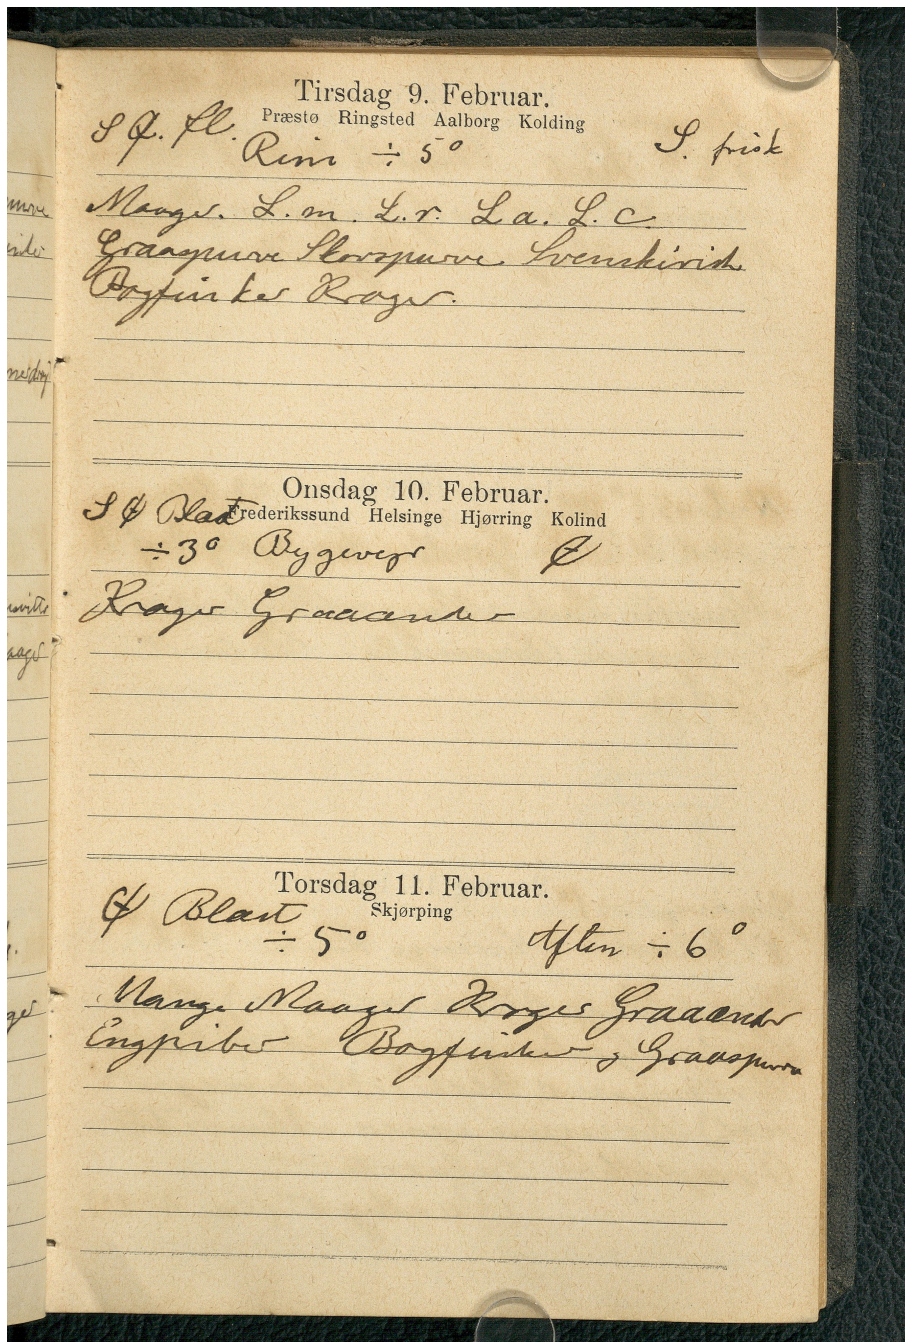 Tirsdag 9. Februar.
Præstø Ringsted Aalborg Kolding
S Ø. fl.
Rim ÷ 5° S. frisk
Maager. L. m. L. r. L a. L. c.
Graaspurve Skovspurve. Svenskirisk
Bogfinker Krager.
Onsdag 10. Februar.
Frederikssund Helsinge Hjørring Kolind
S Ø Blæst
÷ 3° Bygevejr Ø
Krager Graaænder
Torsdag 11. Februar.
Skjørping
Ø Blæst
÷ 5° Aften ÷ 6°
Mange Maager Krager Graaænder
Engpiber Bogfinker og Graaspurve